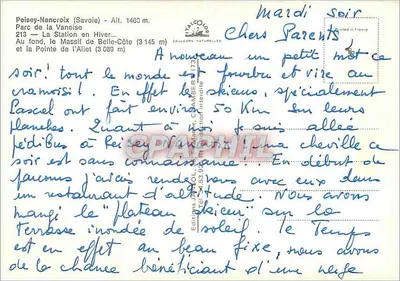 Peisey-Nancroix (Savoie) - Alt. 1460 m.
Parc de la Vanoise
213 — La Station en Hiver...
Au fond, le Massif de Belle-Côte (3 145 m)
et la Pointe de l'Aliet (3 089 m)
COULEURS NATURELLES
mardi soir
Chers Parents
A nouveau un petit mot ce
soir! tout le monde est fourbu et vire au
cramoisi! En effet les skieurs, spécialement
Pascal ont fait environ 50 Km sur leurs
planches. Quant à moi je suis allée
pédibus à Peisey une cheville ce
soir est sans connaissance! En début de
 j'avais rendez vous avec eux dans
un restaurant d'altitude. Nous avons
mangé le "plateau skieur" sur la
terrasse inondée de soleil. le Temps
est en effet au beau fixe, nous avons
de la chance bénéficiant d'une neige
CPAPHIL